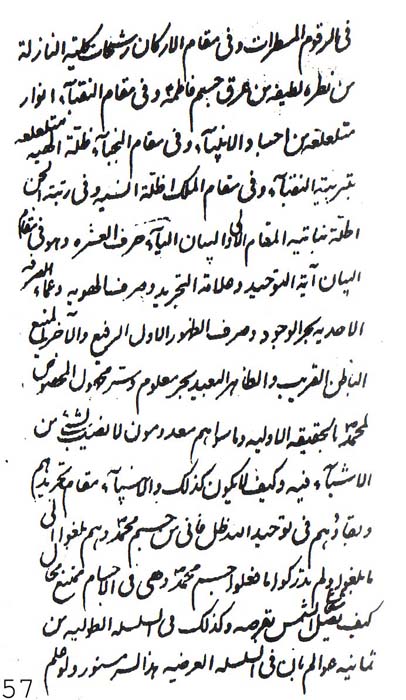 فی الرقوم المسطرات و فی مقام الارکان رشحات کلیته النازلة
من نطره لطیفه من عرق جسم فاطمة و فی مقام النقبآء انوار
متلعلعه من اجساد الانبیآء و فی مقام النجبآء ظلة الهیه متلعلعه
بتربیته النقبآء و فی مقام الملک اظلة السنه و فی رتبة الجن
اظلة نباتیه المقام الی البیان الیآء حرف العشره و هو فی مقام
البیان آیة التوحید و علامة التجرید و صرف الهویه و عمآء الصرفه
الاحدیه بحر الوجود و صرف الظهور الاول الرفیع و الآخر المنیع
الباطن القریب و الظاهر البعید بحر معلوم و ستر مجهول المخصوص
لمحمد بالحقیقه الاولیه و ما سواهم معدومون لا نصیب لشئ من
الاشیآء فیه و کیف لا یکون کذلک و الانبیآء مقام تجریدهم
و بقاؤهم فی توحید الله ظل فانی من جسم محمد و هم بلغوا الی
ما بلغوا و لم یدرکوا ما فعلوا جسم محمد و هی فی الاجسام ممتنع محال
کیف یصل الشمس بقرصه و کذلک فی السلسله الطولیه من
ثمانیه عوالم بان فی السلسله العرضیه هذا السر مستور و لو علم
57